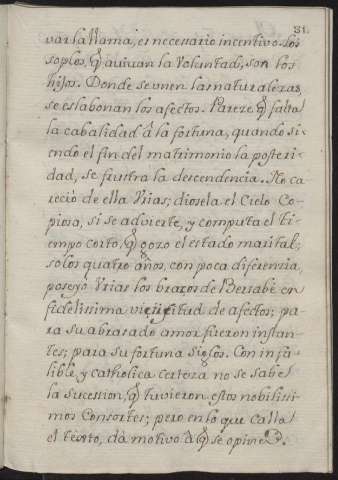 81.
var la llama, es necessario incentivo. Los
soplos, q̃ auivan la Voluntad, son los
hijos. Donde se vnen las naturalezas
se eslabonan los afectos. Pareze q̃ falta
la cabalidad â la fortuna, quando si-
endo el fin del matrimonio la posteri-
dad, se frustra la descendencia. No ca
reció de ella Vrias; diosela el Cielo Co-
piosa, si se advierte, y computa el ti-
empo corto, q̃ gozo el estado marital;
solos quatro años, con poca diferencia,
poseyò Vrias los brazos de Bersabè en
fidelissima vicissitud de afectos; pa-
ra su abrasado amor fueron instan-
tes; para su fortuna Siglos. Con infa-
lible, y catholica certeza no se sabe
la sucession, q̃ tuvieron estos nobilissi-
mos Consortes; pero en lo que calla
el texto, dà motivo â q̃ se opine